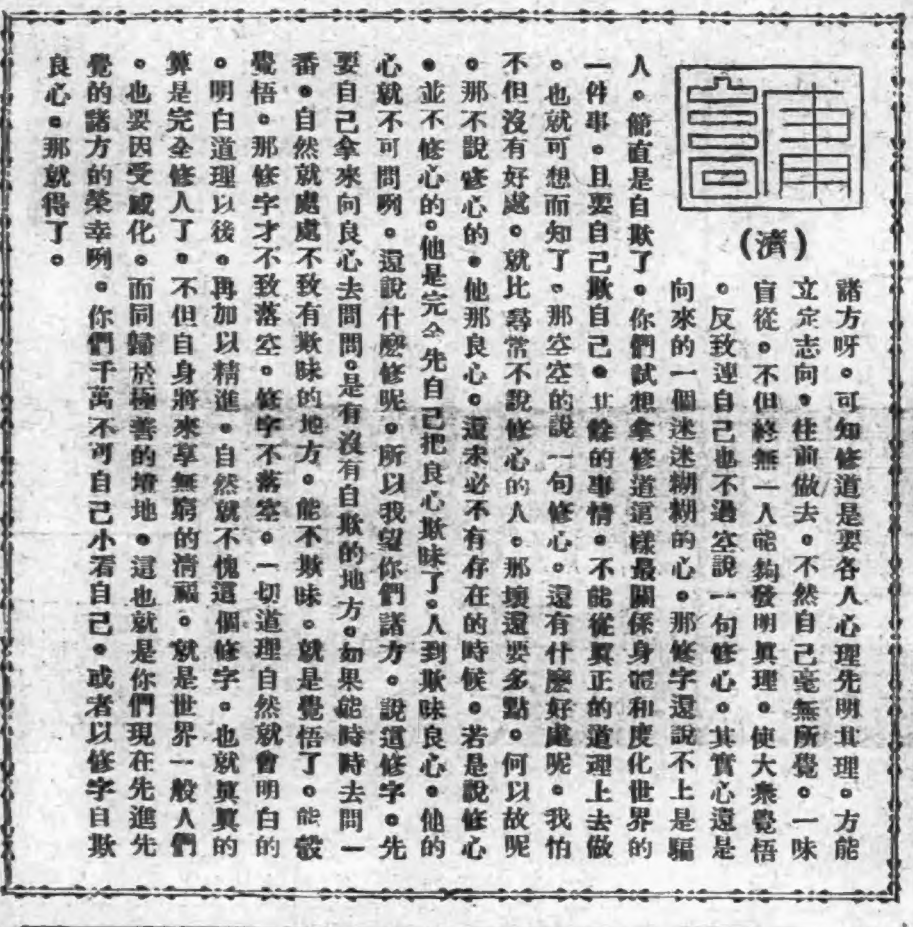 (濟)
諸方呀。可知修道是要各人心理先明其理。方能
立定志向。往前做去。不然自己毫無所覺。一味
盲從。不但終無一人能夠發明眞理。使大衆覺悟
。反致連自己也不過空說一句修心。其實心還是
向來的一個迷迷糊糊的心。那修字還說不上是騙
人。簡直是自欺了。你們試想拿修道這樣最關係身體和度化世界的
一件事。且要自己欺自己。其餘的事情。不能從眞正的道理上去做
。也就可想而知了。那空空的說一句修心。還有什麼好處呢。我怕
不但沒有好處。就比尋常不說修心的人。那壞還要多點。何以故呢
。那不說修心的。他那良心。還未必不有存在的時候。若是說修心
。並不修心的。他是完全先自己把良心欺昧了。人到欺昧良心。他的
心就不可問咧。還說什麼修呢。所以我望你們諸方。說這修字。先
要自己拿來向良心去問問。是有沒有自欺的地方。如果能時時去問一
番。自然就處處不致有欺昧的地方。能不欺昧。就是覺悟了。能彀
覺悟。那修字才不致落空。修字不落空。一切道理自然就會明白的
。明白道理以後。再加以精進。自然就不愧這個修字。也就眞眞的
算是完全修人了。不但自身將來享無窮的清福。就是世界一般人們
。也要因受感化。而同歸於極善的境地。這也就是你們現在先進先
覺的諸方的榮幸咧。你們千萬不可自己小看自己。或者以修字自欺
良心。那就得了。